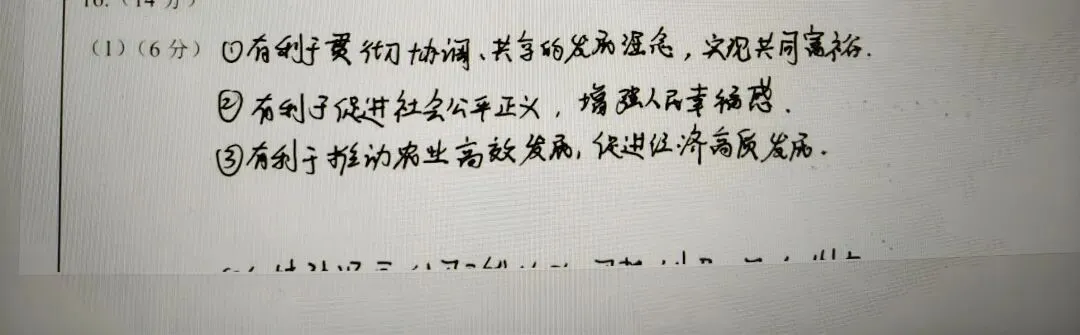 16. (14分)
(1)(6分) ①有利于贯彻协调、共享的发展理念，实现共同富裕.
②有利于促进社会公平正义，增强人民幸福感.
③有利于推动农业高效发展，促进经济高质发展.